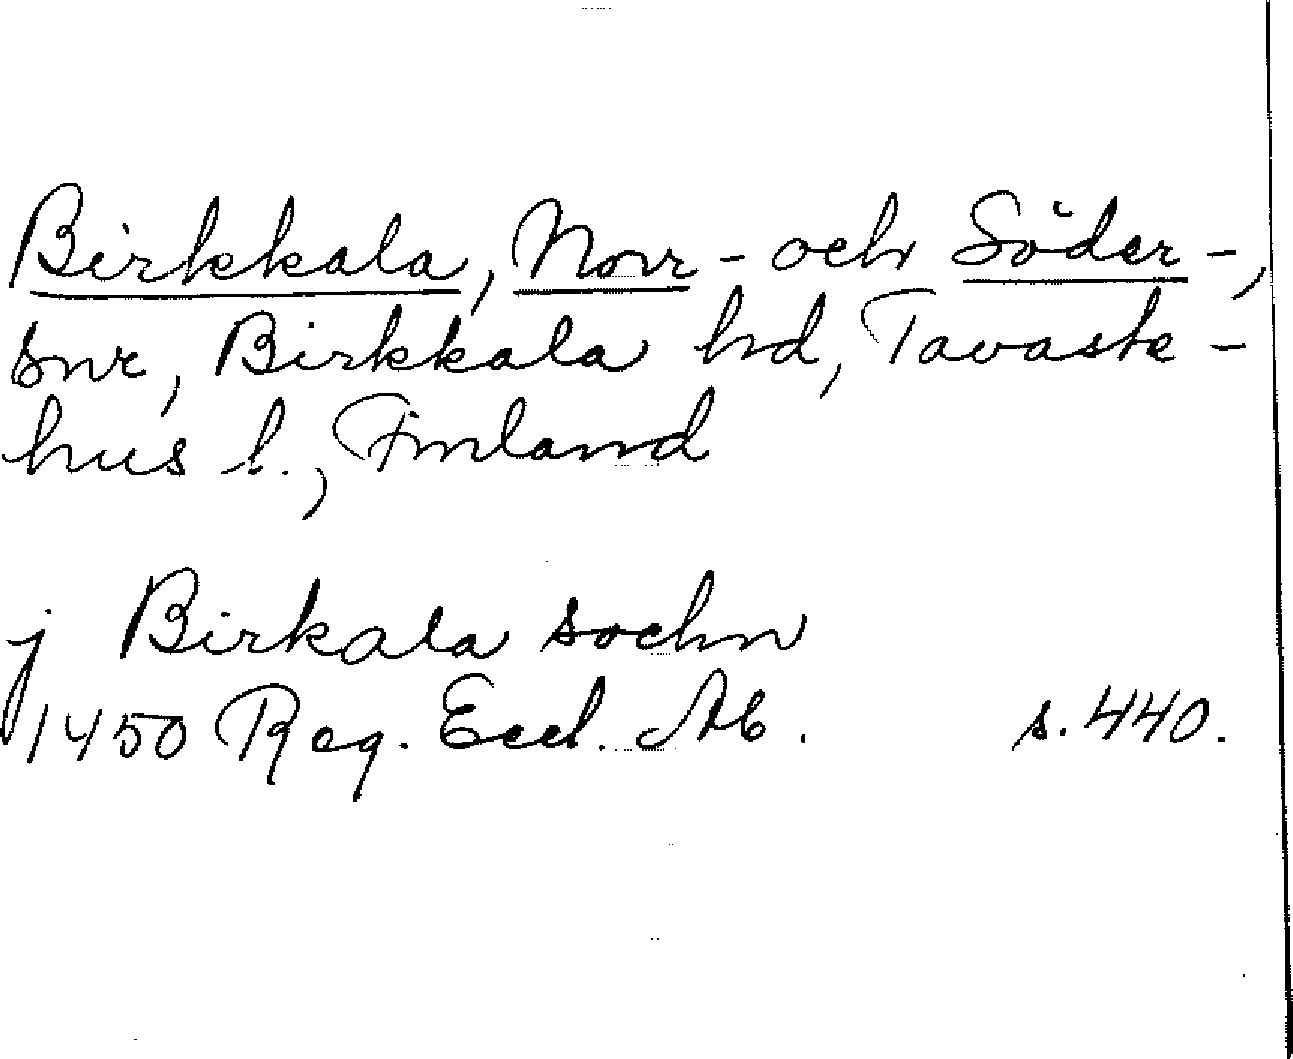 Birkkala, Norr- och Söder-,
snr, Birkkala hd, Tavaste-
hus l., Finland
j Birkala sochn
1450 Reg. Eccl. Ab. s. 440.